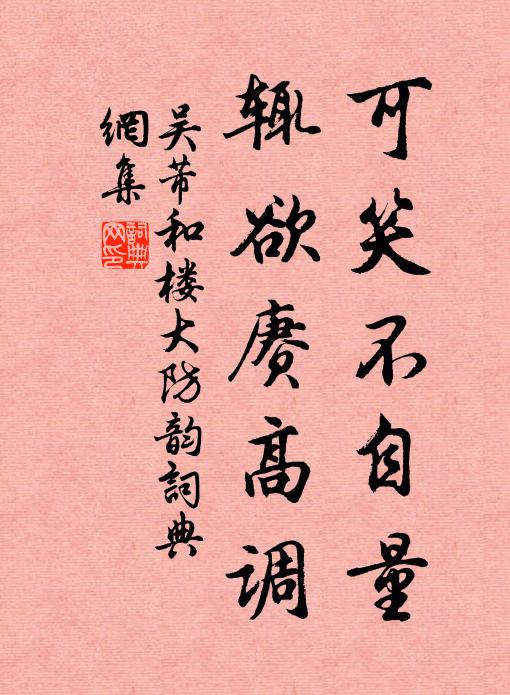 可笑不自量
辄欲赓高调
吴芾和楼大防韵詞典
網集
詞典
网印